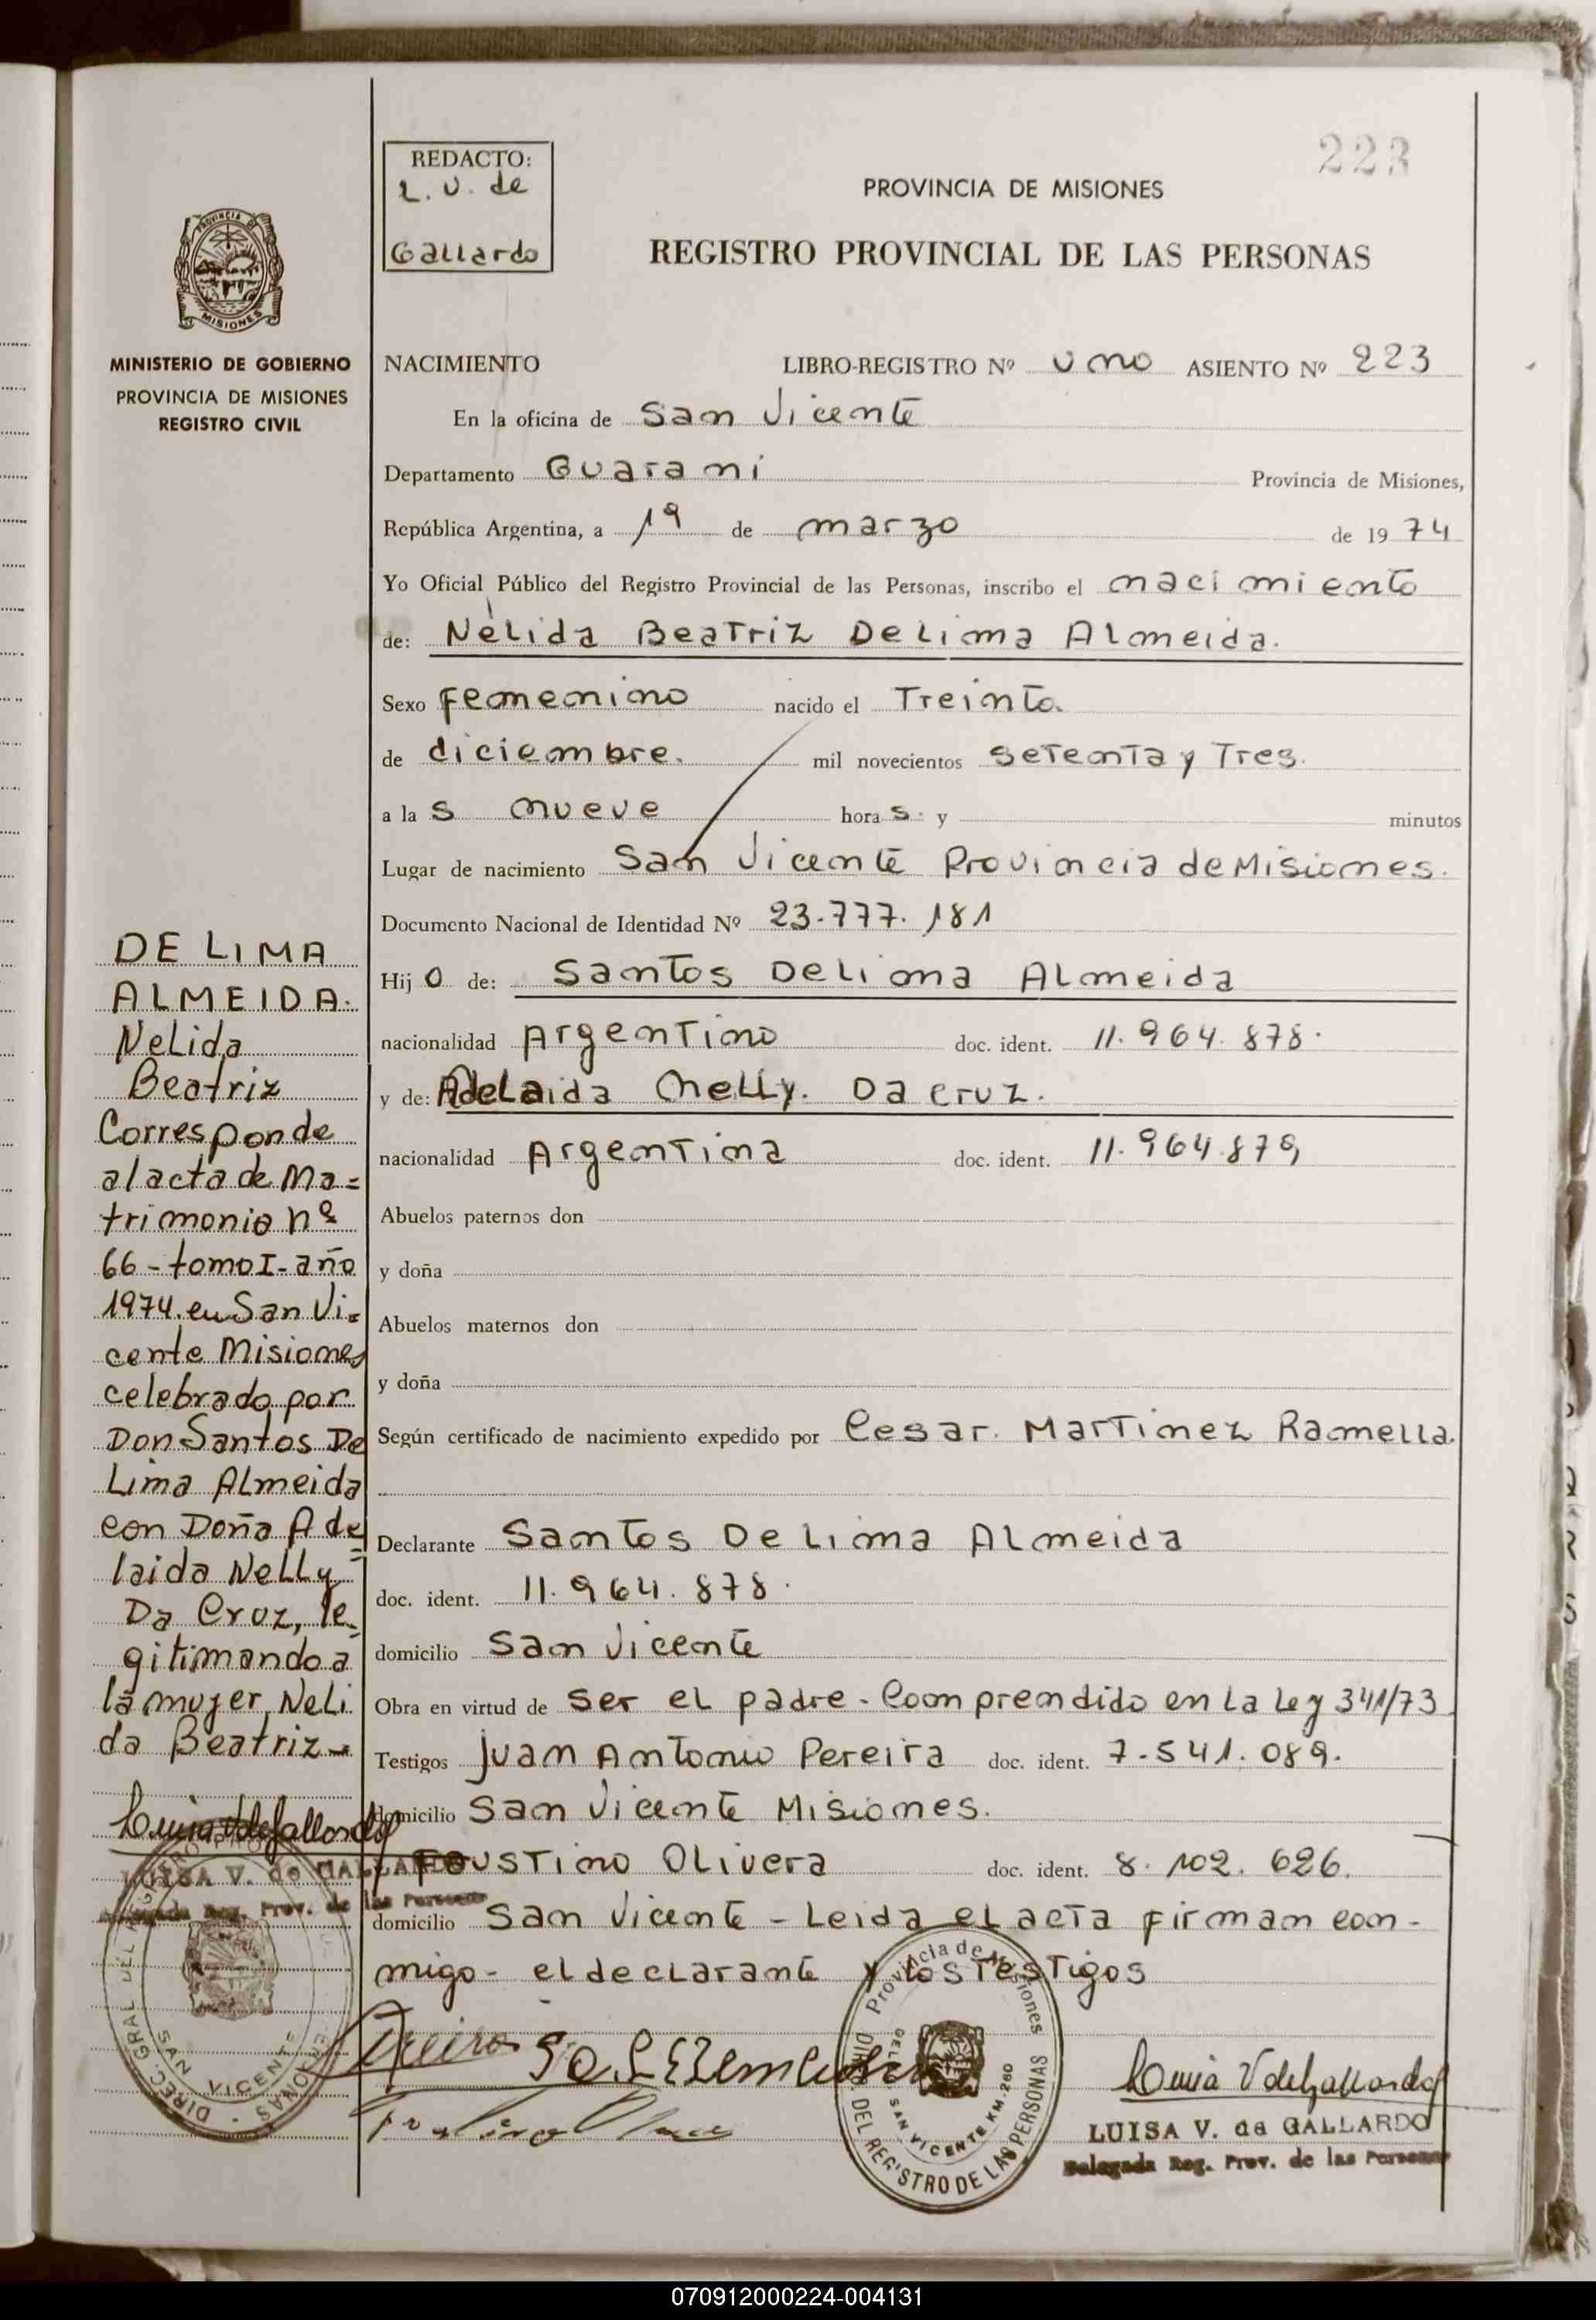 223
REDACTO:
L. V. de
Gallardo
PROVINCIA DE MISIONES
REGISTRO PROVINCIAL DE LAS PERSONAS
MISIONES
MINISTERIO DE GOBIERNO
PROVINCIA DE MISIONES
REGISTRO CIVIL
NACIMIENTO LIBRO-REGISTRO Nº uno ASIENTO Nº 223
En la oficina de San Vicente
Departamento Guarani Provincia de Misiones,
República Argentina, a 1º de marzo de 1974
Yo Oficial Público del Registro Provincial de las Personas, inscribo el nacimiento
de: Nèlida Beatriz De Lima Almeida.
Sexo Femenino nacido el Treinta
de diciembre. mil novecientos setenta y Tres.
a la s nueve hora s. y minutos
Lugar de nacimiento San Vicente Provincia de Misiones.
Documento Nacional de Identidad Nº 23.777.181
Hij o de: Santos De Lima Almeida
nacionalidad Argentino doc. ident. 11.964.878.
y de: Adelaida Nelly. Da Cruz.
nacionalidad Argentina doc. ident. 11.964.879
Abuelos paternos don
y doña
Abuelos maternos don
y doña
Según certificado de nacimiento expedido por Cesar. Martinez Ramella.
Declarante Santos De Lima Almeida
doc. ident. 11.964.878.
domicilio San Vicente
Obra en virtud de ser el padre - Comprendido en la Ley 341/73
Testigos Juan Antonio Pereira doc. ident. 7.541.089.
domicilio San Vicente Misiones.
Faustino Olivera doc. ident. 8.102.626.
domicilio San Vicente - Leida el acta firman con-
migo - el declarante y los Testigos
DE LIMA
ALMEIDA.
Nelida
Beatriz
Corresponde
al acta de Ma=
trimonio nº
66 - tomo I - año
1974. en San Vi=
cente Misiones
celebrado por
Don Santos De
Lima Almeida
con Doña Ade
laida Nelly
Da Cruz, le=
gitimando a
la mujer Neli
da Beatriz -
Luisa V de Gallardo
LUISA V. de GALLARDO
Delegada Reg. Prov. de las Personas
DIREC. GRAL DEL REGISTRO
SAN VICENTE
Provincia de Misiones
DIREC. DEL REGISTRO DE LAS PERSONAS
DELEG. SAN VICENTE KM. 260
Luisa V de Gallardo
LUISA V. de GALLARDO
Delegada Reg. Prov. de las Personas
070912000224-004131